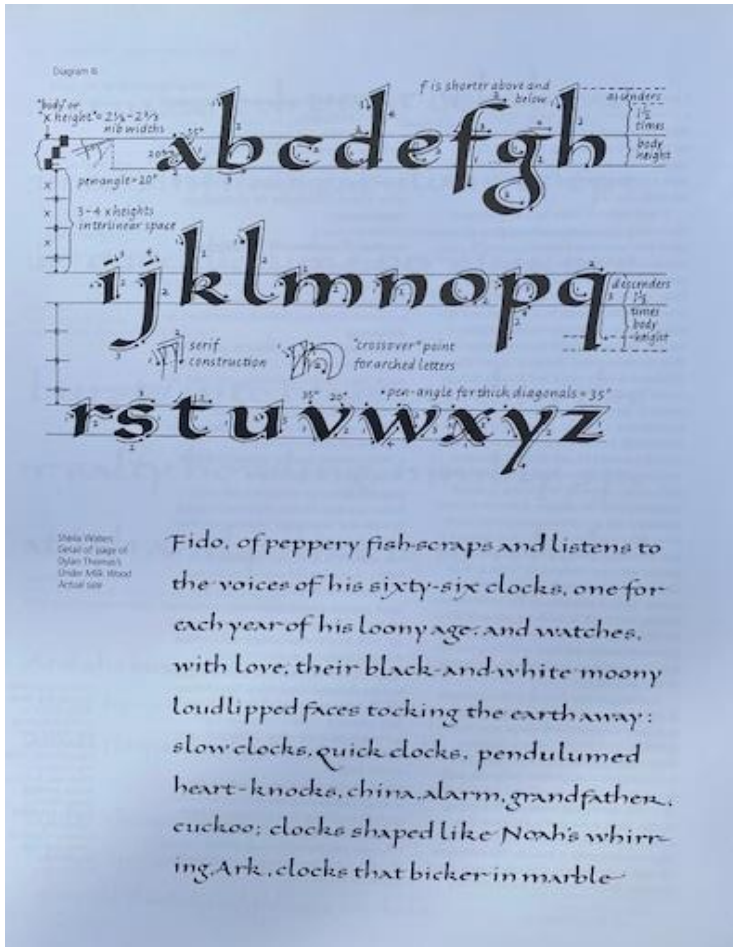 Diagram 16
"body" or
"x height" = 2½ - 2⅔
nib widths
f is shorter above and
below
ascenders
1½
times
body
height
a b c d e f g h
pen angle = 20°
x
x
x
x
3-4 x heights
interlinear space
i j k l m n o p q
descenders
1½
times
body
height
serif
construction
"crossover" point
for arched letters
35° 20°
• pen-angle for thick diagonals = 35°
r s t u v w x y z
Sheila Waters
Detail of page of
Dylan Thomas's
Under Milk Wood
Actual size
Fido, of peppery fish-scraps and listens to
the voices of his sixty-six clocks, one for
each year of his loony age, and watches,
with love, their black-and-white moony
loudlipped faces tocking the earth away:
slow clocks, quick clocks, pendulumed
heart-knocks, china, alarm, grandfather,
cuckoo; clocks shaped like Noah's whirr-
ing Ark, clocks that bicker in marble